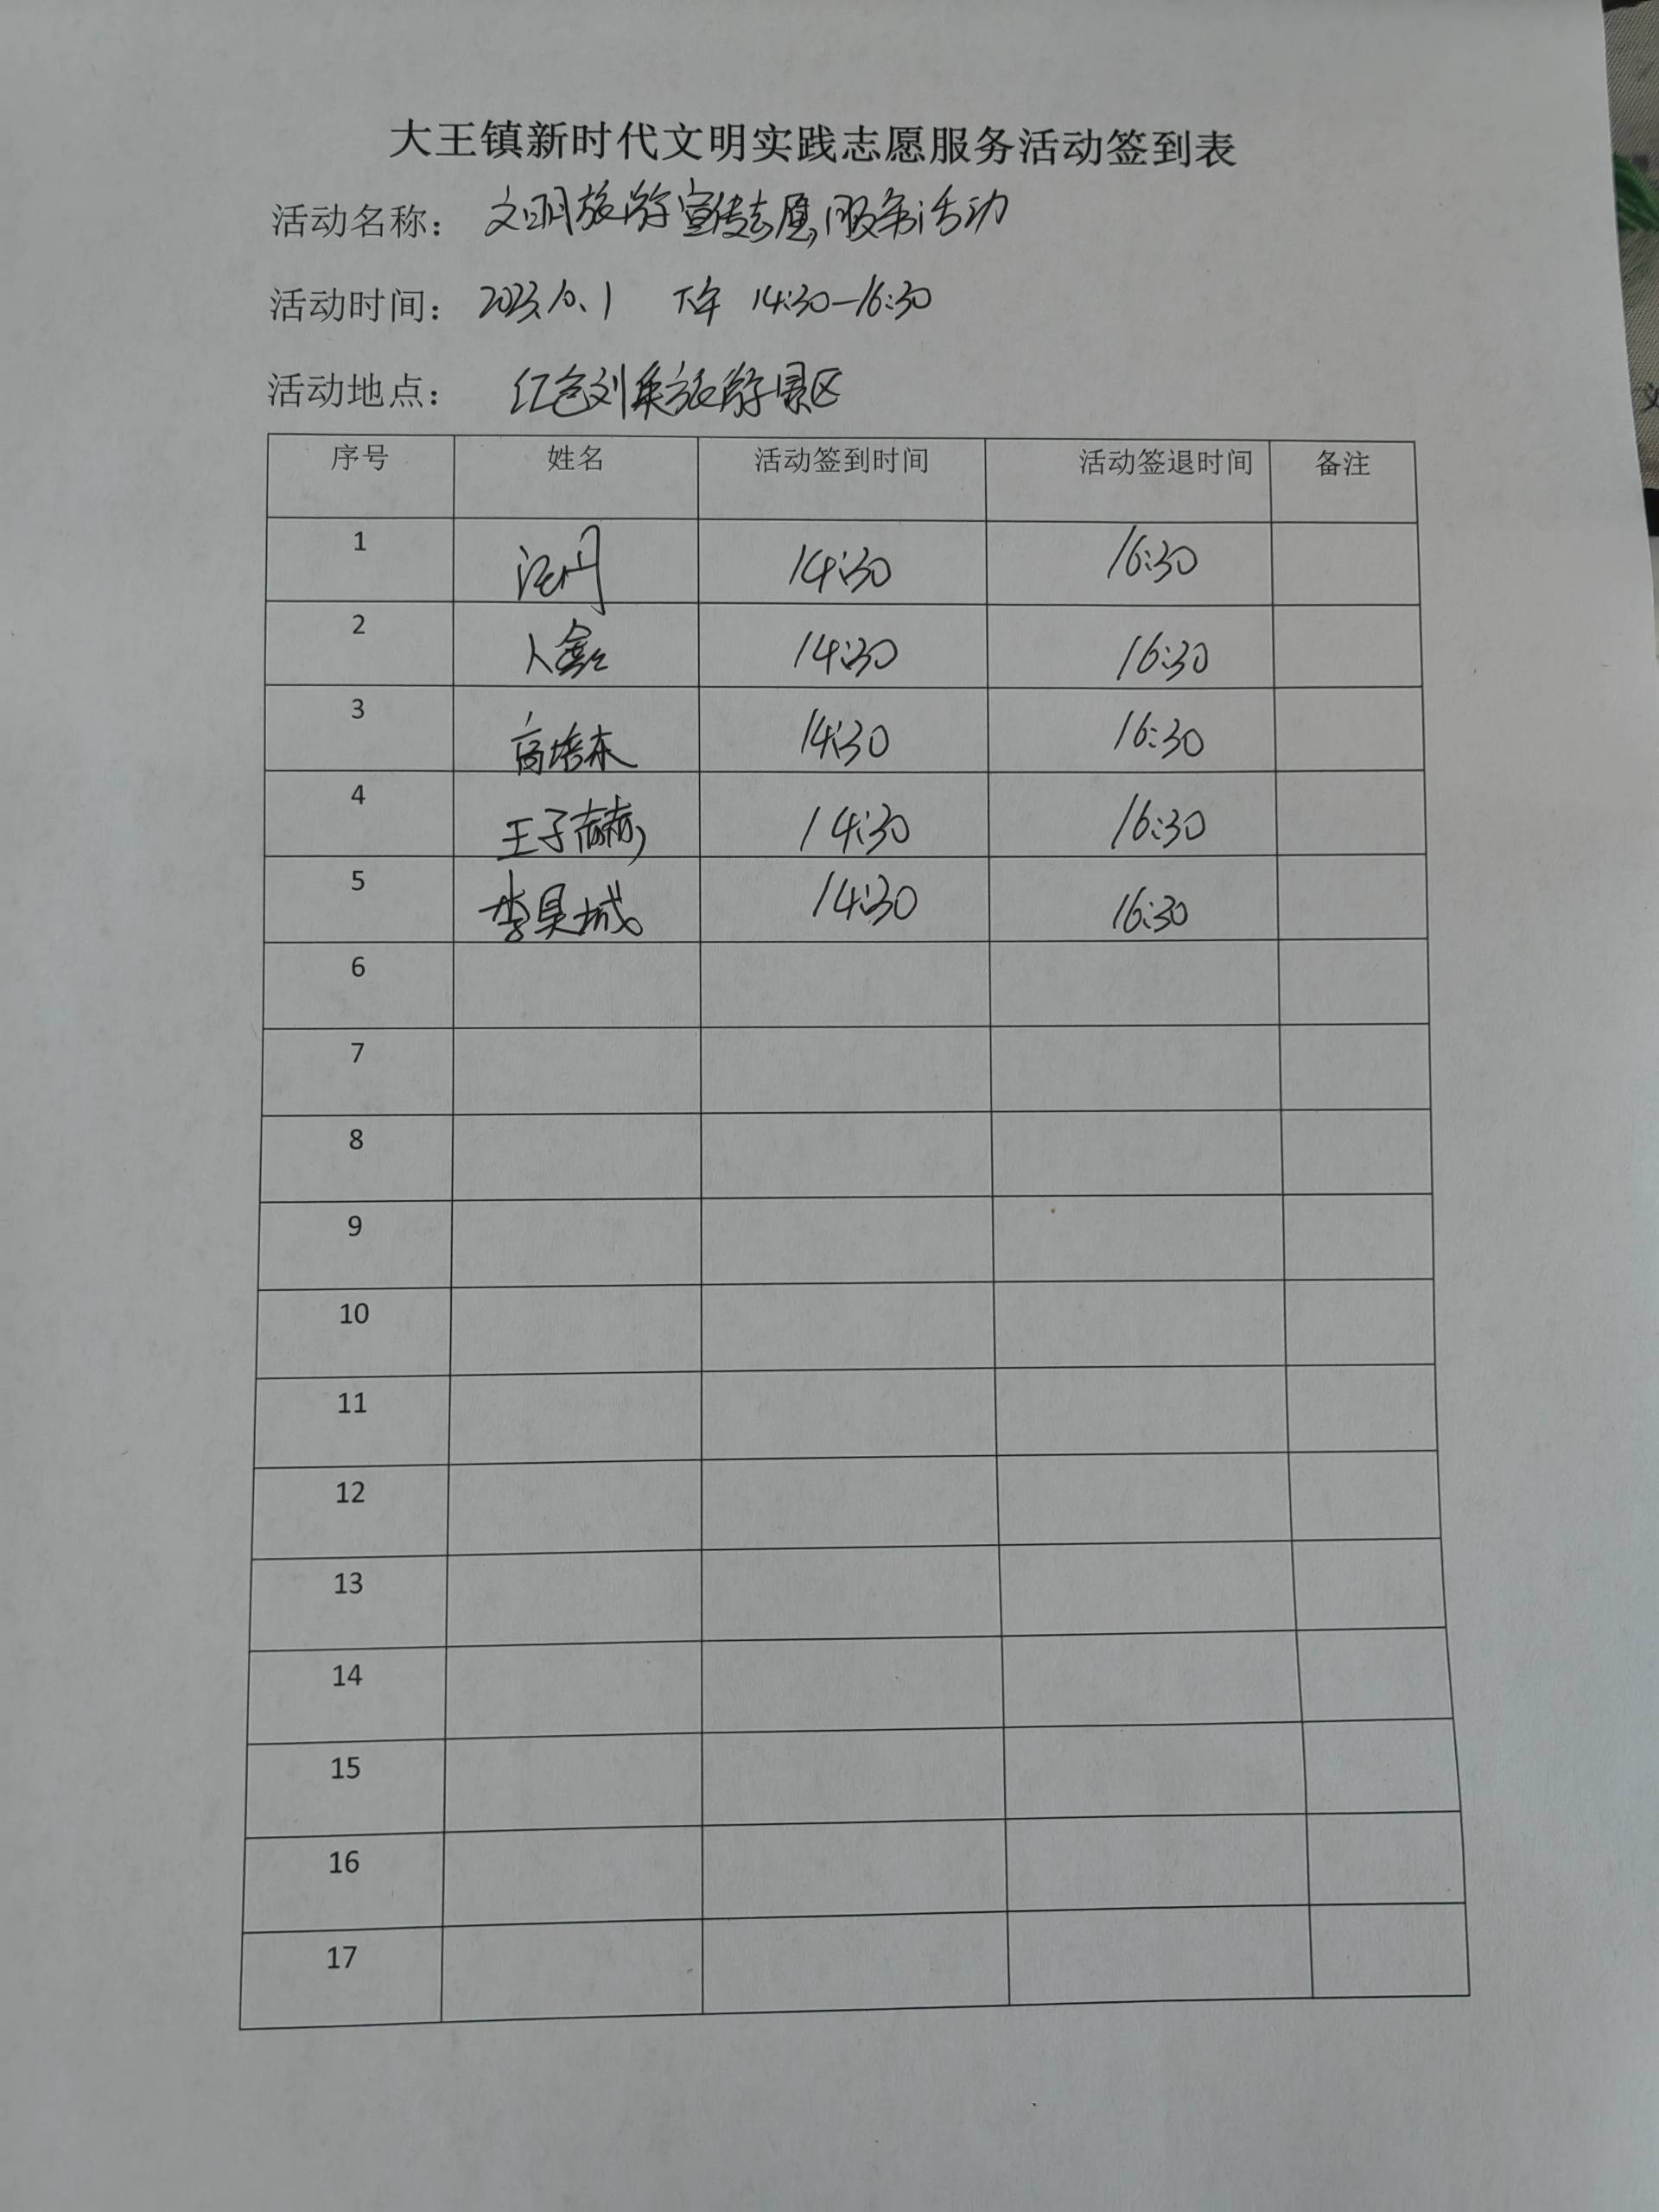 大王镇新时代文明实践志愿服务活动签到表
活动名称： 文明旅游宣传志愿服务活动
活动时间： 2023.10.1 下午 14:30—16:30
活动地点： 红色刘集旅游景区
序号 姓名 活动签到时间 活动签退时间 备注
1 14:30 16:30
2 14:30 16:30
3 高培本 14:30 16:30
4 王子赫 14:30 16:30
5 李昊城 14:30 16:30
6
7
8
9
10
11
12
13
14
15
16
17